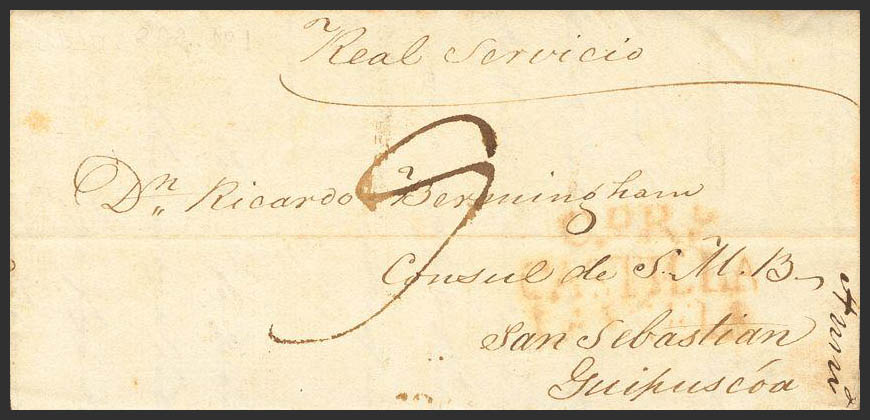 Real Servicio
9
Dn. Ricardo Bermingham
Consul de S. M. B.
San Sebastian
Guipuscóa
CASTILLA